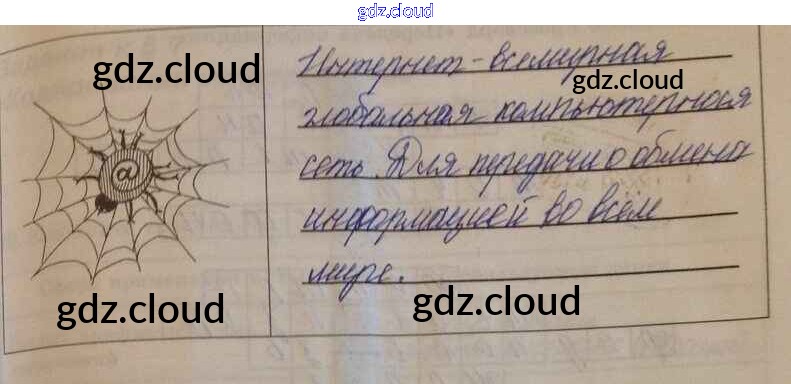 gdz.cloud
gdz.cloud
Интернет - всемирная
gdz.cloud
глобальная компьютерная
@
сеть. Для передачи о обмена
информацией во всём
мире.
gdz.cloud
gdz.cloud